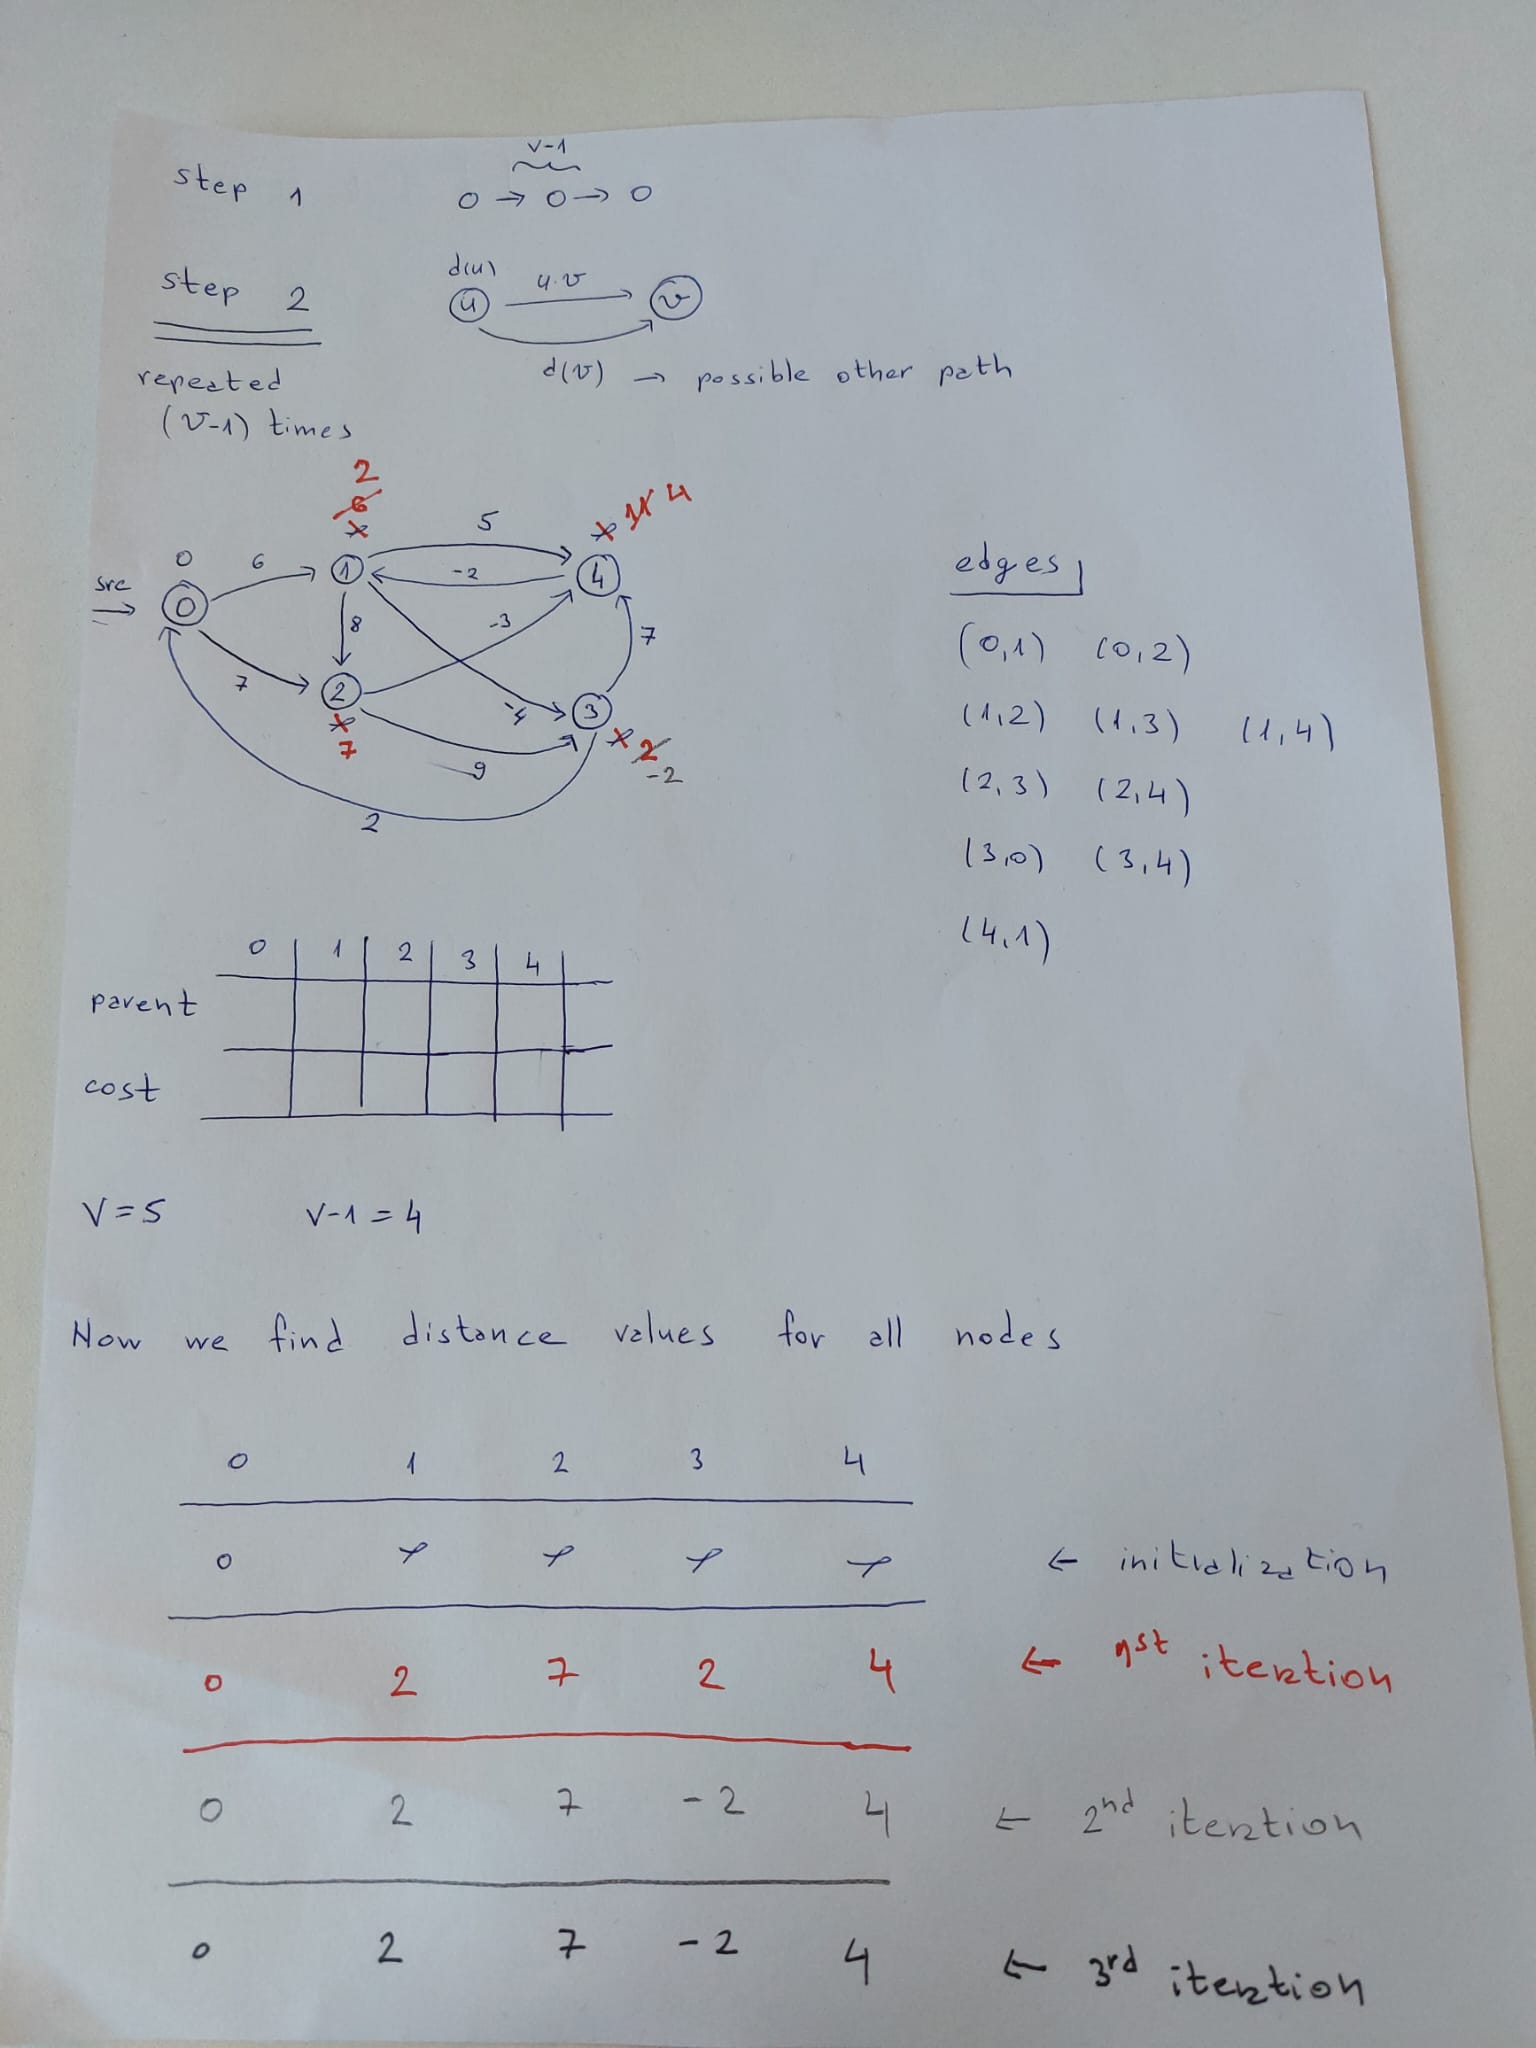 step 1
v-1
0 → 0 → 0
step 2
d(u)
u u.v v
d(v) → possible other path
repeated
(v-1) times
2
6
x
x 11 4
0
src
→
0 6 1 5 4
-2
8
-3
7
7
2
-4
3
x
7
x 2
-2
9
2
edges
(0,1) (0,2)
(1,2) (1,3) (1,4)
(2,3) (2,4)
(3,0) (3,4)
(4,1)
0 1 2 3 4
parent
cost
V=5 V-1=4
Now we find distance values for all nodes
0 1 2 3 4
0 ← initialization
0 2 7 2 4 ← 1st iteration
0 2 7 -2 4 ← 2nd iteration
0 2 7 -2 4 ← 3rd iteration